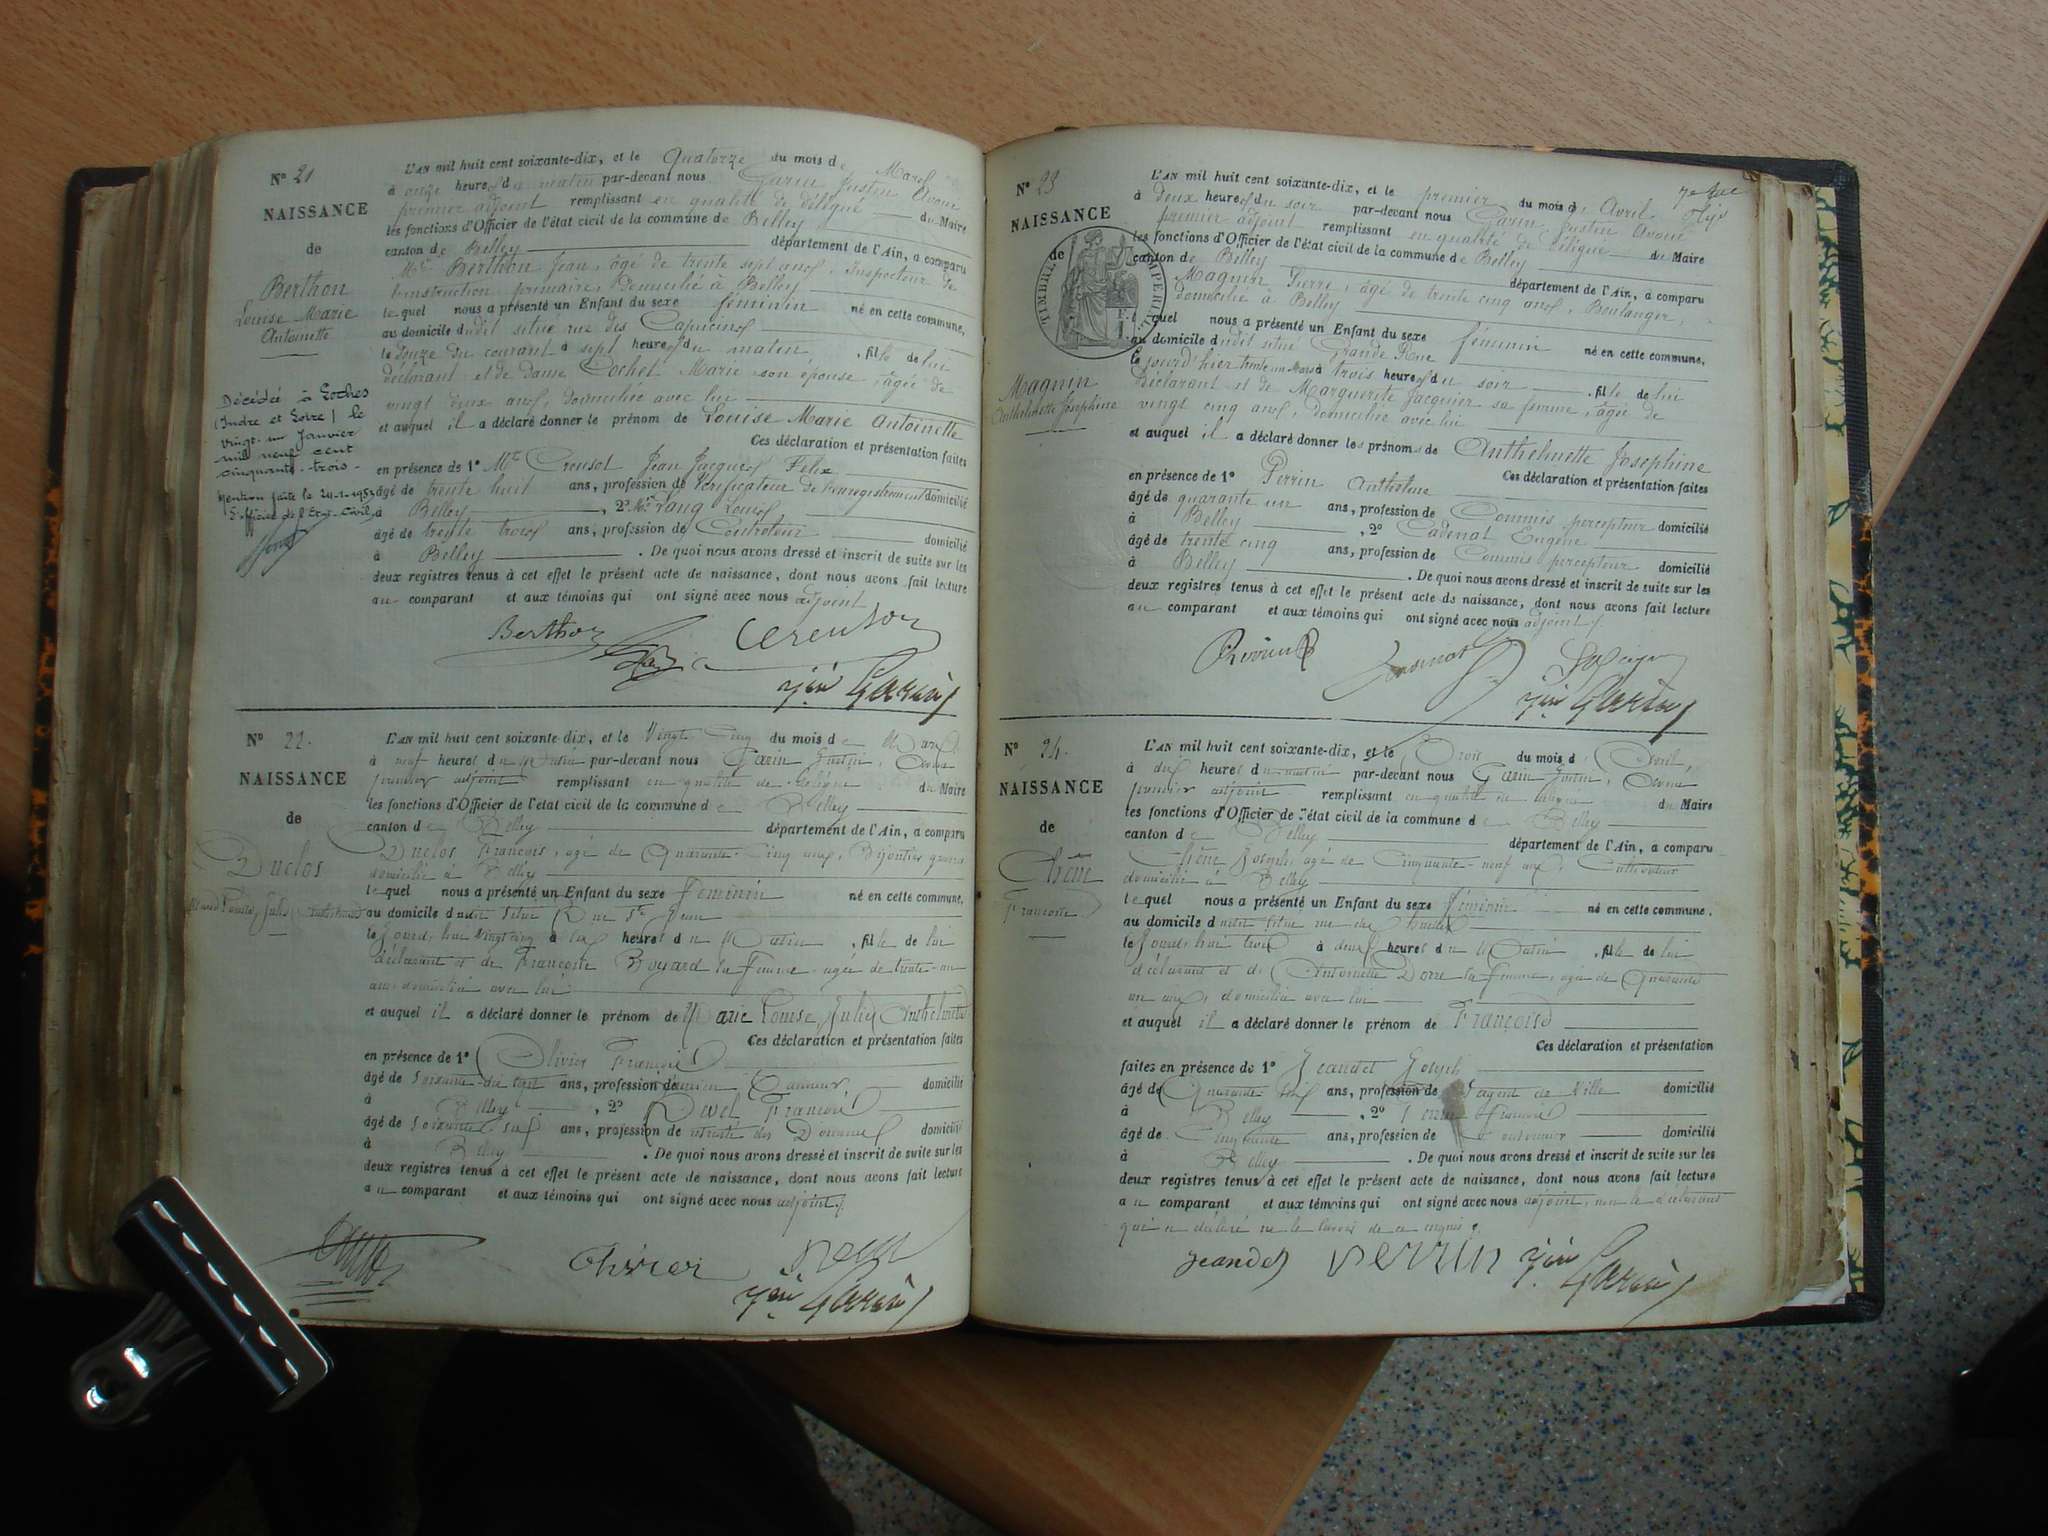 N° 21
NAISSANCE
de
Berthon
Louise Marie
Antoinette
Décédée à Loches
(Indre et Loire) le
vingt-un janvier
mil neuf cent
cinquante-trois.
Mention faite le 24-1-1953
L'officier de l'Etat-Civil,
L'AN mil huit cent soixante-dix, et le quatorze du mois de Mars
à onze heures du matin par-devant nous Garin Justin Avoué
premier adjoint remplissant en qualité de délégué du Maire
les fonctions d'Officier de l'état civil de la commune de Belley
canton de Belley département de l'Ain, a comparu
Mr Berthon Jean, âgé de trente sept ans, Inspecteur de
l'instruction primaire, domicilié à Belley
lequel nous a présenté un Enfant du sexe féminin né en cette commune,
au domicile dudit situé rue des Capucins
le douze du courant à sept heures du matin, fille de lui
déclarant et de Dame Cochet Marie son épouse, âgée de
vingt deux ans, domiciliée avec lui
et auquel il a déclaré donner le prénom de Louise Marie Antoinette
Ces déclaration et présentation faites
en présence de 1° Mr Creusot Jean Jacques Félix
âgé de trente huit ans, profession de Vérificateur de l'enregistrement domicilié
à Belley, 2° Mr Louis
âgé de trente trois ans, profession de Contrôleur domicilié
à Belley. De quoi nous avons dressé et inscrit de suite sur les
deux registres tenus à cet effet le présent acte de naissance, dont nous avons fait lecture
au comparant et aux témoins qui ont signé avec nous adjoint
Berthon
Jin Garin
N° 22.
NAISSANCE
de
Duclos
Marie Louise, Julie, Anthelmette
L'AN mil huit cent soixante-dix, et le Vingt Cinq du mois de Mars
à neuf heures du Matin par-devant nous Garin Justin, Avoué
premier adjoint remplissant en qualité de délégué du Maire
les fonctions d'Officier de l'état civil de la commune de Belley
canton de Belley département de l'Ain, a comparu
Duclos François, âgé de Quarante Cinq ans, Bijoutier
domicilié à Belley
lequel nous a présenté un Enfant du sexe Féminin né en cette commune,
au domicile dudit situé Rue
le jourd'hui vingt cinq à six heures du Matin, fille de lui
déclarant et de Françoise Boyard sa femme âgée de trente un
ans domiciliée avec lui
et auquel il a déclaré donner le prénom de Marie Louise, Julie, Anthelmette
Ces déclaration et présentation faites
en présence de 1° Olivier François
âgé de soixante-dix sept ans, profession de ancien Tanneur, domicilié
à Belley, 2° François
âgé de soixante six ans, profession de retraité des Douanes domicilié
à Belley. De quoi nous avons dressé et inscrit de suite sur les
deux registres tenus à cet effet le présent acte de naissance, dont nous avons fait lecture
au comparant et aux témoins qui ont signé avec nous adjoint
Olivier
Jin Garin
N° 23
NAISSANCE
de
TIMBRE IMPERIAL
Magnin
Anthelmette Joséphine
L'AN mil huit cent soixante-dix, et le premier du mois d'Avril
à deux heures du soir par-devant nous Garin Justin Avoué
premier adjoint remplissant en qualité de délégué du Maire
les fonctions d'Officier de l'état civil de la commune de Belley
canton de Belley département de l'Ain, a comparu
Magnin Pierre, âgé de trente cinq ans, Boulanger,
domicilié à Belley
lequel nous a présenté un Enfant du sexe féminin né en cette commune,
au domicile dudit situé Grande Rue
le jourd'hier trente un Mars à trois heures du soir, fille de lui
déclarant et de Marguerite Jacquier sa femme, âgée de
vingt cinq ans, domiciliée avec lui
et auquel il a déclaré donner les prénoms de Anthelmette Joséphine
Ces déclaration et présentation faites
en présence de 1° Perrin Anthelme
âgé de quarante un ans, profession de Commis percepteur domicilié
à Belley, 2° Cadenat Eugène
âgé de trente cinq ans, profession de Commis percepteur domicilié
à Belley. De quoi nous avons dressé et inscrit de suite sur les
deux registres tenus à cet effet le présent acte de naissance, dont nous avons fait lecture
au comparant et aux témoins qui ont signé avec nous adjoint
Jin Garin
N° 24.
NAISSANCE
de
Chêne
Françoise
L'AN mil huit cent soixante-dix, et le Trois du mois d'Avril,
à dix heures du matin par-devant nous Garin Justin, Avoué
premier adjoint remplissant en qualité de délégué du Maire
les fonctions d'Officier de l'état civil de la commune de Belley
canton de Belley département de l'Ain, a comparu
Chêne Joseph, âgé de Cinquante neuf ans, Cultivateur
domicilié à Belley
lequel nous a présenté un Enfant du sexe féminin né en cette commune,
au domicile dudit situé rue
le jourd'hui trois à deux heures du Matin, fille de lui
déclarant et de Antoinette sa femme, âgée de Quarante
un ans, domiciliée avec lui
et auquel il a déclaré donner le prénom de Françoise
Ces déclaration et présentation
faites en présence de 1° Jeandet Joseph
âgé de Quarante ans, profession de agent de Ville domicilié
à Belley, 2° François
âgé de Cinquante ans, profession de domicilié
à Belley. De quoi nous avons dressé et inscrit de suite sur les
deux registres tenus à cet effet le présent acte de naissance, dont nous avons fait lecture
au comparant et aux témoins qui ont signé avec nous adjoint, non le déclarant
qui a déclaré ne le savoir de ce requis.
Jeandet Perrin Jin Garin